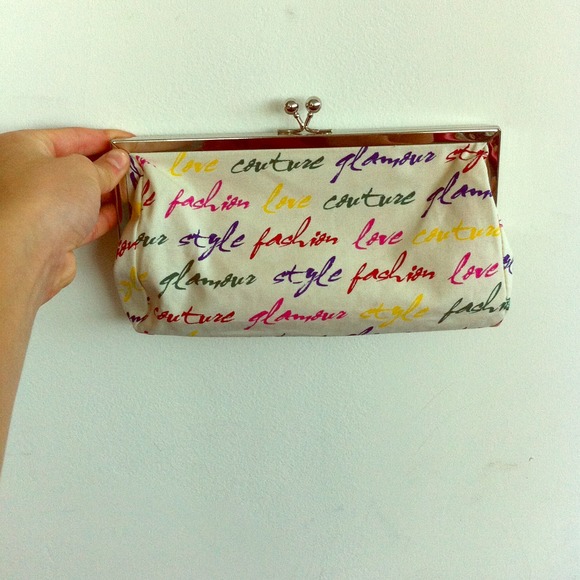 love couture glamour sty
le fashion love couture glam
our style fashion love couture
yle glamour style fashion love
couture glamour style fashi